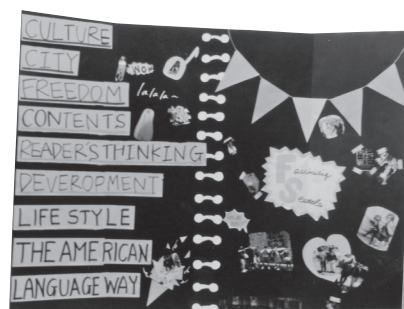 CULTURE
CITY
NOW
FREEDOM
lalala~
CONTENTS
READER'S THINKING
DEVEROPMENT
LIFE STYLE
THE AMERICAN
LANGUAGE WAY
FS